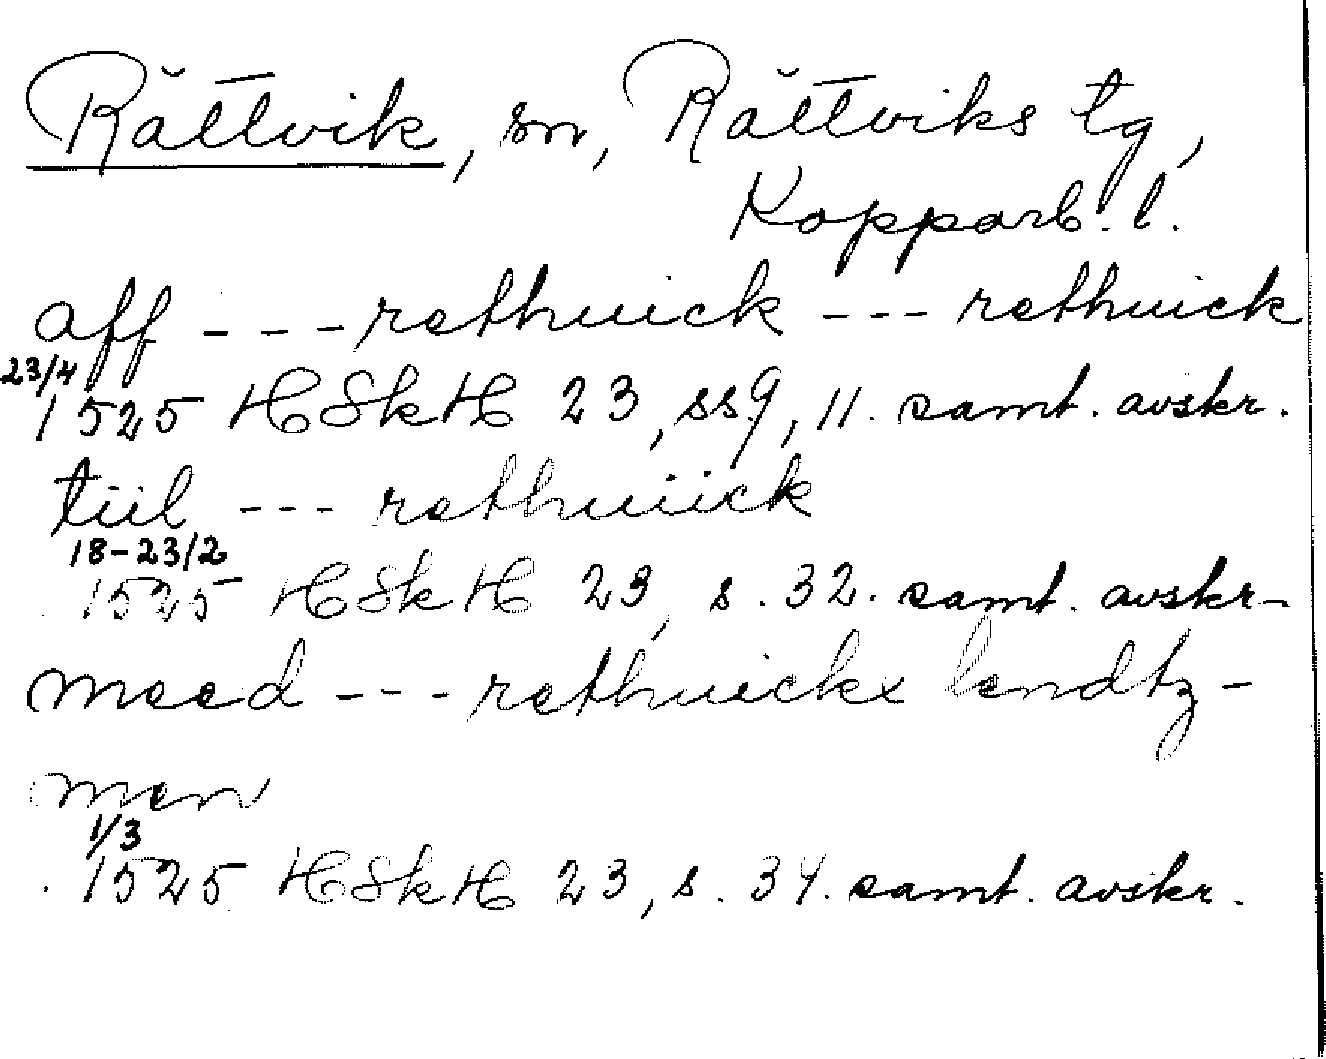 Rättvik, sn, Rättviks tg,
Kopparb. l.
aff --- rethuick --- rethuick
23/4
1525 HSkH 23, ss 9, 11. samt. avskr.
tiil --- rethuiick
18-23/2
1525 HSkH 23, s. 32. samt. avskr.
meed --- rethuickx lendtz-
men
1/3
1525 HSkH 23, s. 34. samt. avskr.